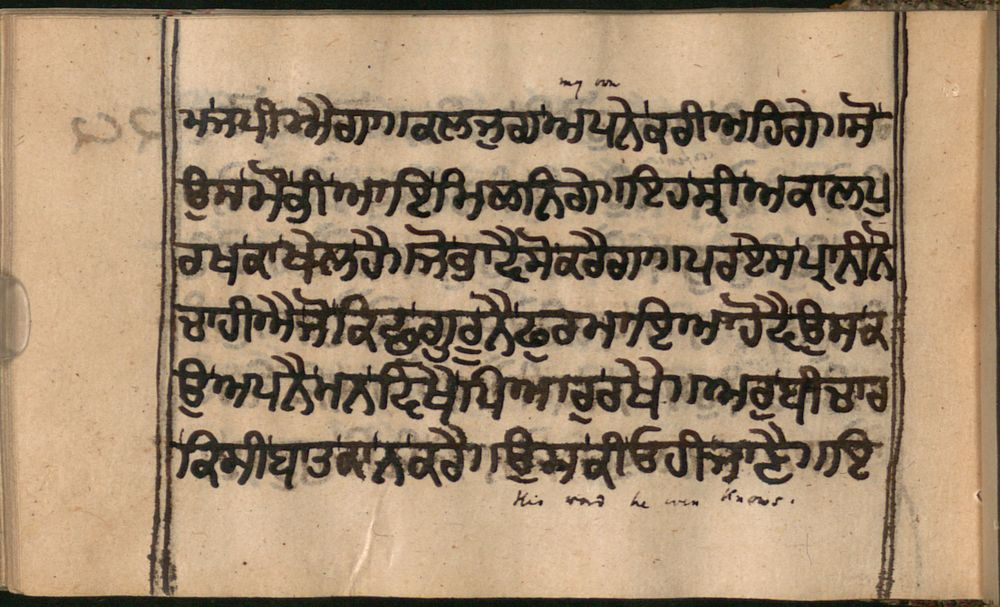 my own
ਖਸਖੀਐਗਾ॥ਕਲਜੁਗਅਪਨੇਕਰੀਅਹਿਗੇ॥ਸੋ
ਉਸਸੌਕੀਆਇਮਿਲਨਿਗੇ॥ਇਹਸ੍ਰੀਅਕਾਲਪੁ
ਰਖਕਾਖੇਲਹੈ॥ਜੋਭਾਵੈਸੋਕਰੈਗਾ॥ਪਰਏਸਪ੍ਰਾਨੀਨੋ
ਚਾਹੀਐਜੋਕਿਛੁਗੁਰੂਨੈਫੁਰਮਾਇਆਹੋਵੈਉਸਕ
ਉਅਪਨੈਮਨਵਿਖੈਪਿਆਰੁਰਖੈ॥ਅਰੁਬੀਚਾਰ
ਕਿਸੀਬਾਤਕਾਨਕਰੈ॥ਉਸਕੀਓਹੀਜਾਣੈ॥ਇ
His word he own knows.